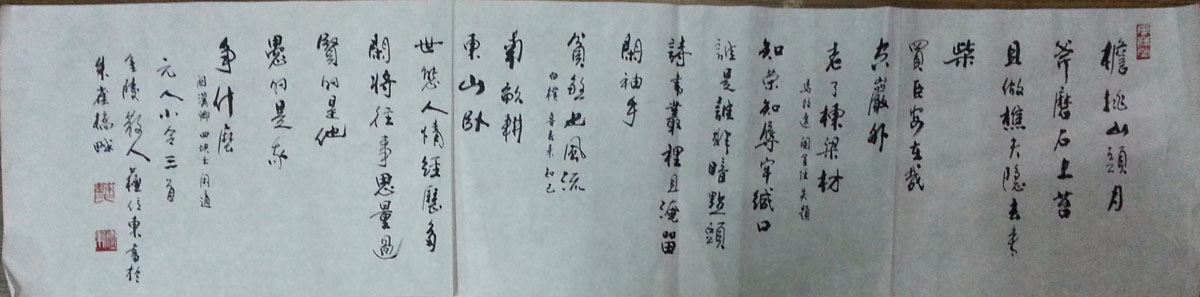 檐挑山頭月
斧磨石上苔
且做樵夫隐去来
柴
買臣安在哉
空巖外
老了棟梁材
馬致遠 閑居注 失題
知荣知辱牢緘口
誰是誰非暗點頭
詩書叢裡且淹留
閑袖手
貧煞也風流
白樸 喜春来 知己
南畝耕
東山卧
世態人情經歷多
閑將往事思量過
賢的是他
愚的是我
争什麼
關漢卿 四塊玉 閑適
元人小令三首
金陵散人 任東書於
朱雀橋畔